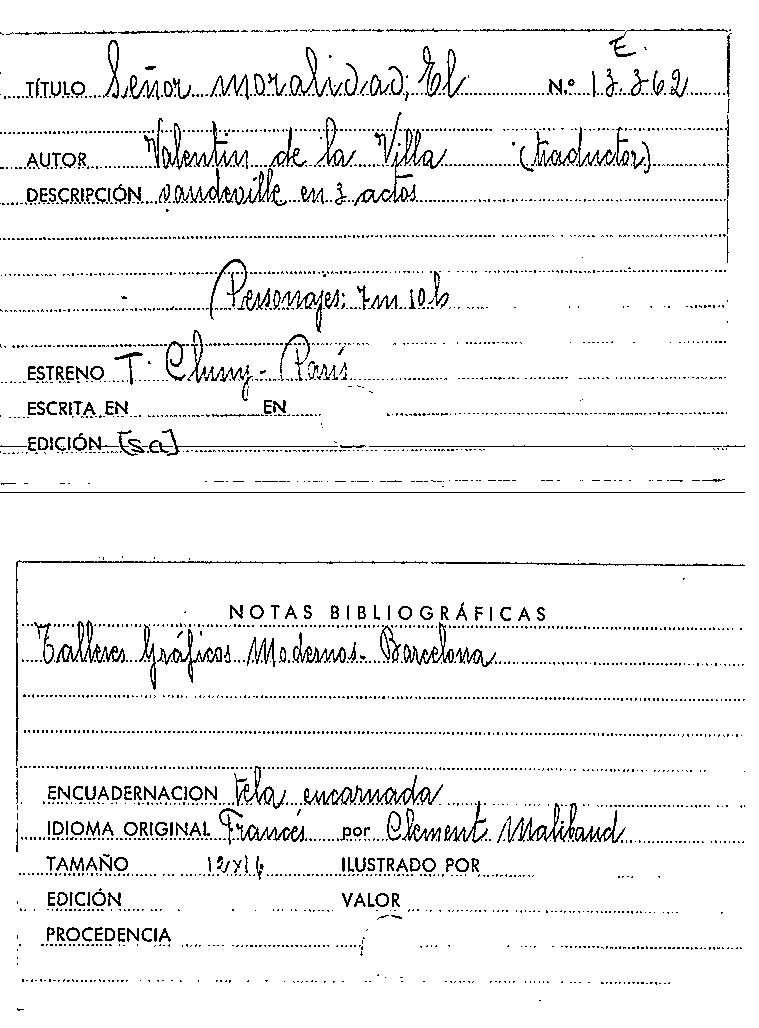 E.
TÍTULO Señor moralidad, El N.º 13.362
AUTOR Valentin de la Villa (traductor)
DESCRIPCIÓN vaudeville en 3 actos
Personajes: 7m 10h
ESTRENO T. Cluny - París
ESCRITA EN EN
EDICIÓN [sa]
NOTAS BIBLIOGRÁFICAS
Talleres Gráficos Modernos - Barcelona
ENCUADERNACION tela encarnada
IDIOMA ORIGINAL Francés por Clement
TAMAÑO ILUSTRADO POR
EDICIÓN VALOR
PROCEDENCIA